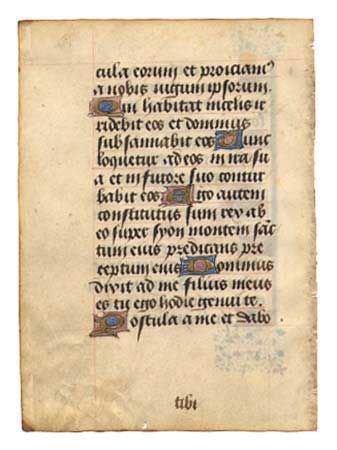 cula eorum et proiciam⁹
a nobis iugum ipsorum.
Qui habitat in celis ir
ridebit eos et dominus
subsannabit eos Tunc
loquetur ad eos in ira su
a et in furore suo contur
babit eos Ego autem
constitutus sum rex ab
eo super syon montem sāc
tum eius predicans pre
ceptum eius Dominus
dixit ad me filius meus
es tu ego hodie genui te.
Postula a me et dabo
tibi